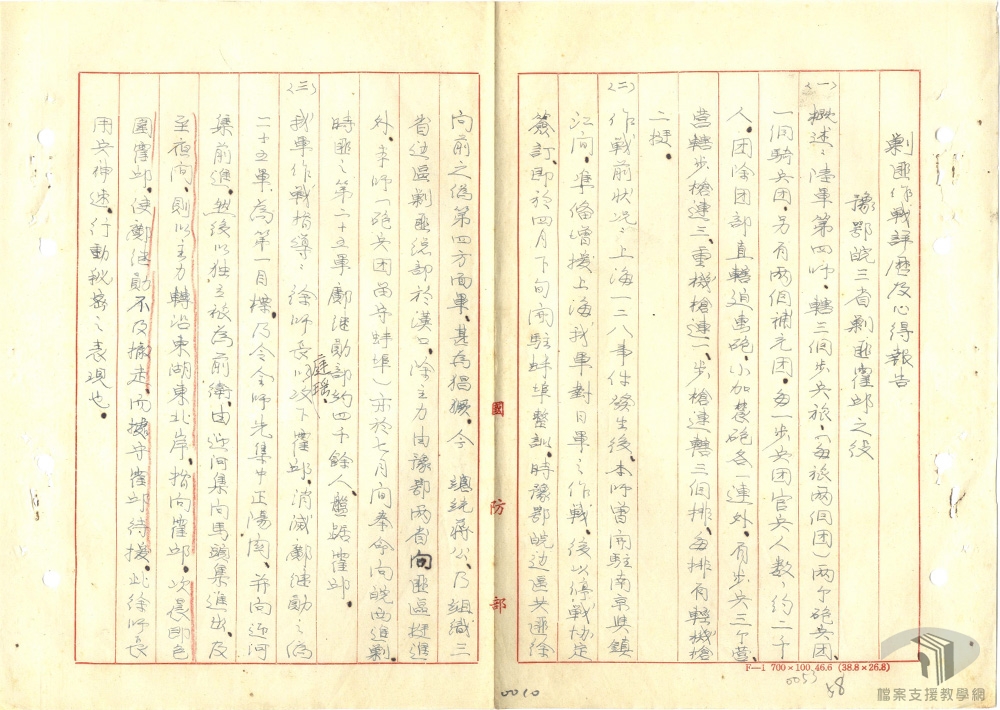 剿匪作戰詳歷及心得報告
豫鄂皖三省剿匪霍邱之役
(一)概述:陸軍第四師,轄三個步兵旅,(每旅兩個團)兩个砲兵团,
一個騎兵团,另有兩個補充团,每一步兵团官兵人數,約二千
人,团除团部直轄迫击砲,小加農砲各一連外,有步兵三个營,
營轄步槍連三、重機槍連一,步槍連轄三個排,每排有輕機槍
二挺。
(二)作戰前狀況:上海一二八事件發生後,本師曾開駐南京與鎮
江间,準備增援上海我軍對日軍之作戰,後以停戰協定
簽訂,即於四月下旬開駐蚌埠整訓,時豫鄂皖边區共匪徐
向前之偽第四方面軍,甚為猖獗,今 總統蔣公,乃組織三
省边區剿匪總部於漢口,除主力由豫鄂兩省向匪區挺進
外,本師(砲兵团留守蚌埠)亦於七月间奉命向皖西進剿,
時匪之第二十五軍鄺继勛部約四千餘人,盤踞霍邱。
(三)我軍作戰指導:徐師長庭瑤以攻下霍邱,消滅鄺继勛之偽
二十五軍,為第一目標,乃令全師先集中正陽関,并向迎河
集前進,然後以独立旅為前衛,由迎河集向馬頭集進出,及
至夜间,則以主力轉沿東湖東北岸,指向霍邱,次晨即包
圍霍邱,使鄺继勛不及撤走,而據守霍邱待援,此徐師長
用兵神速,行動秘密之表現也。
國防部
F—1 700×100 46.6 (38.8×26.8)
0053
58
0010
檔案支援教學網